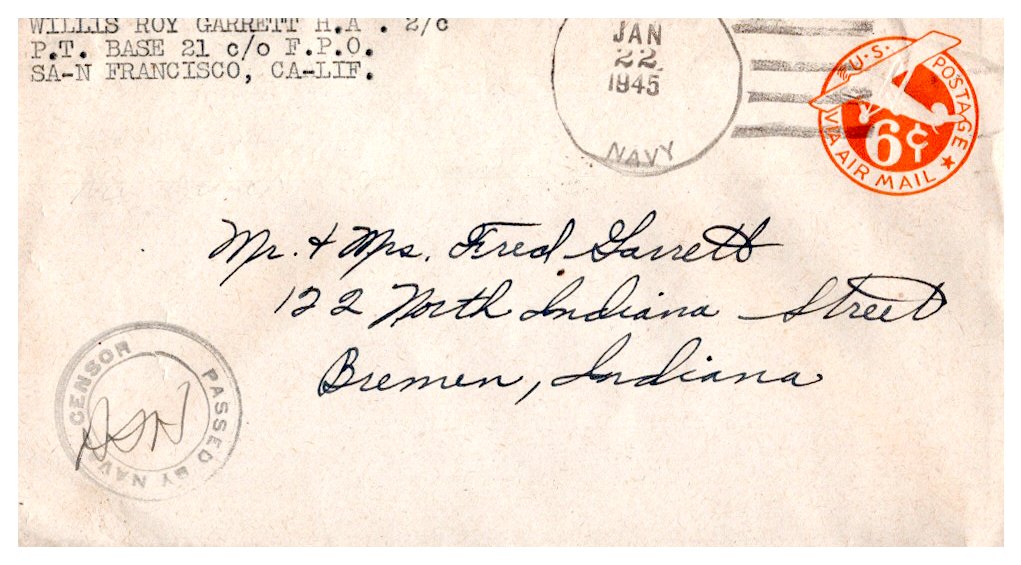 WILLIS ROY GARRETT H.A . 2/c
P.T. BASE 21 c/o F.P.O.
SA-N FRANCISCO, CA-LIF.
JAN
22
1945
NAVY
U.S. POSTAGE
6¢
VIA AIR MAIL
Mr. + Mrs. Fred Garrett
122 North Indiana Street
Bremen, Indiana
PASSED BY NAVAL CENSOR